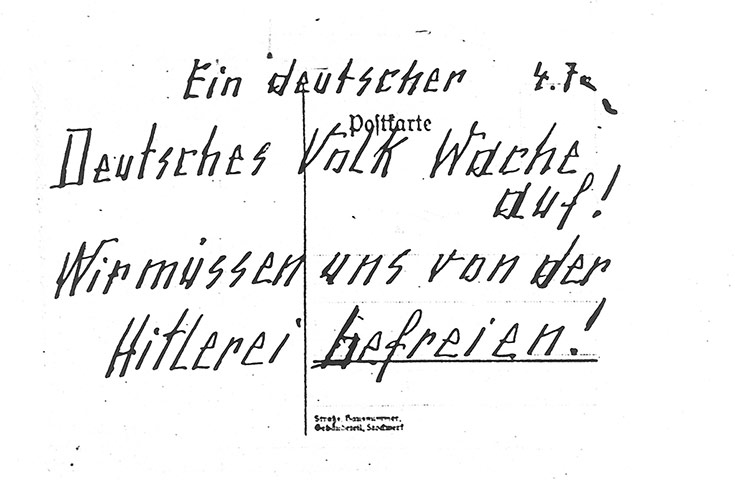 Ein deutscher
Postkarte
Deutsches Volk Wache
auf!
Wir müssen uns von der
Hitlerei befreien!
Straße, Hausnummer,
Gebäudeteil, Stockwerk